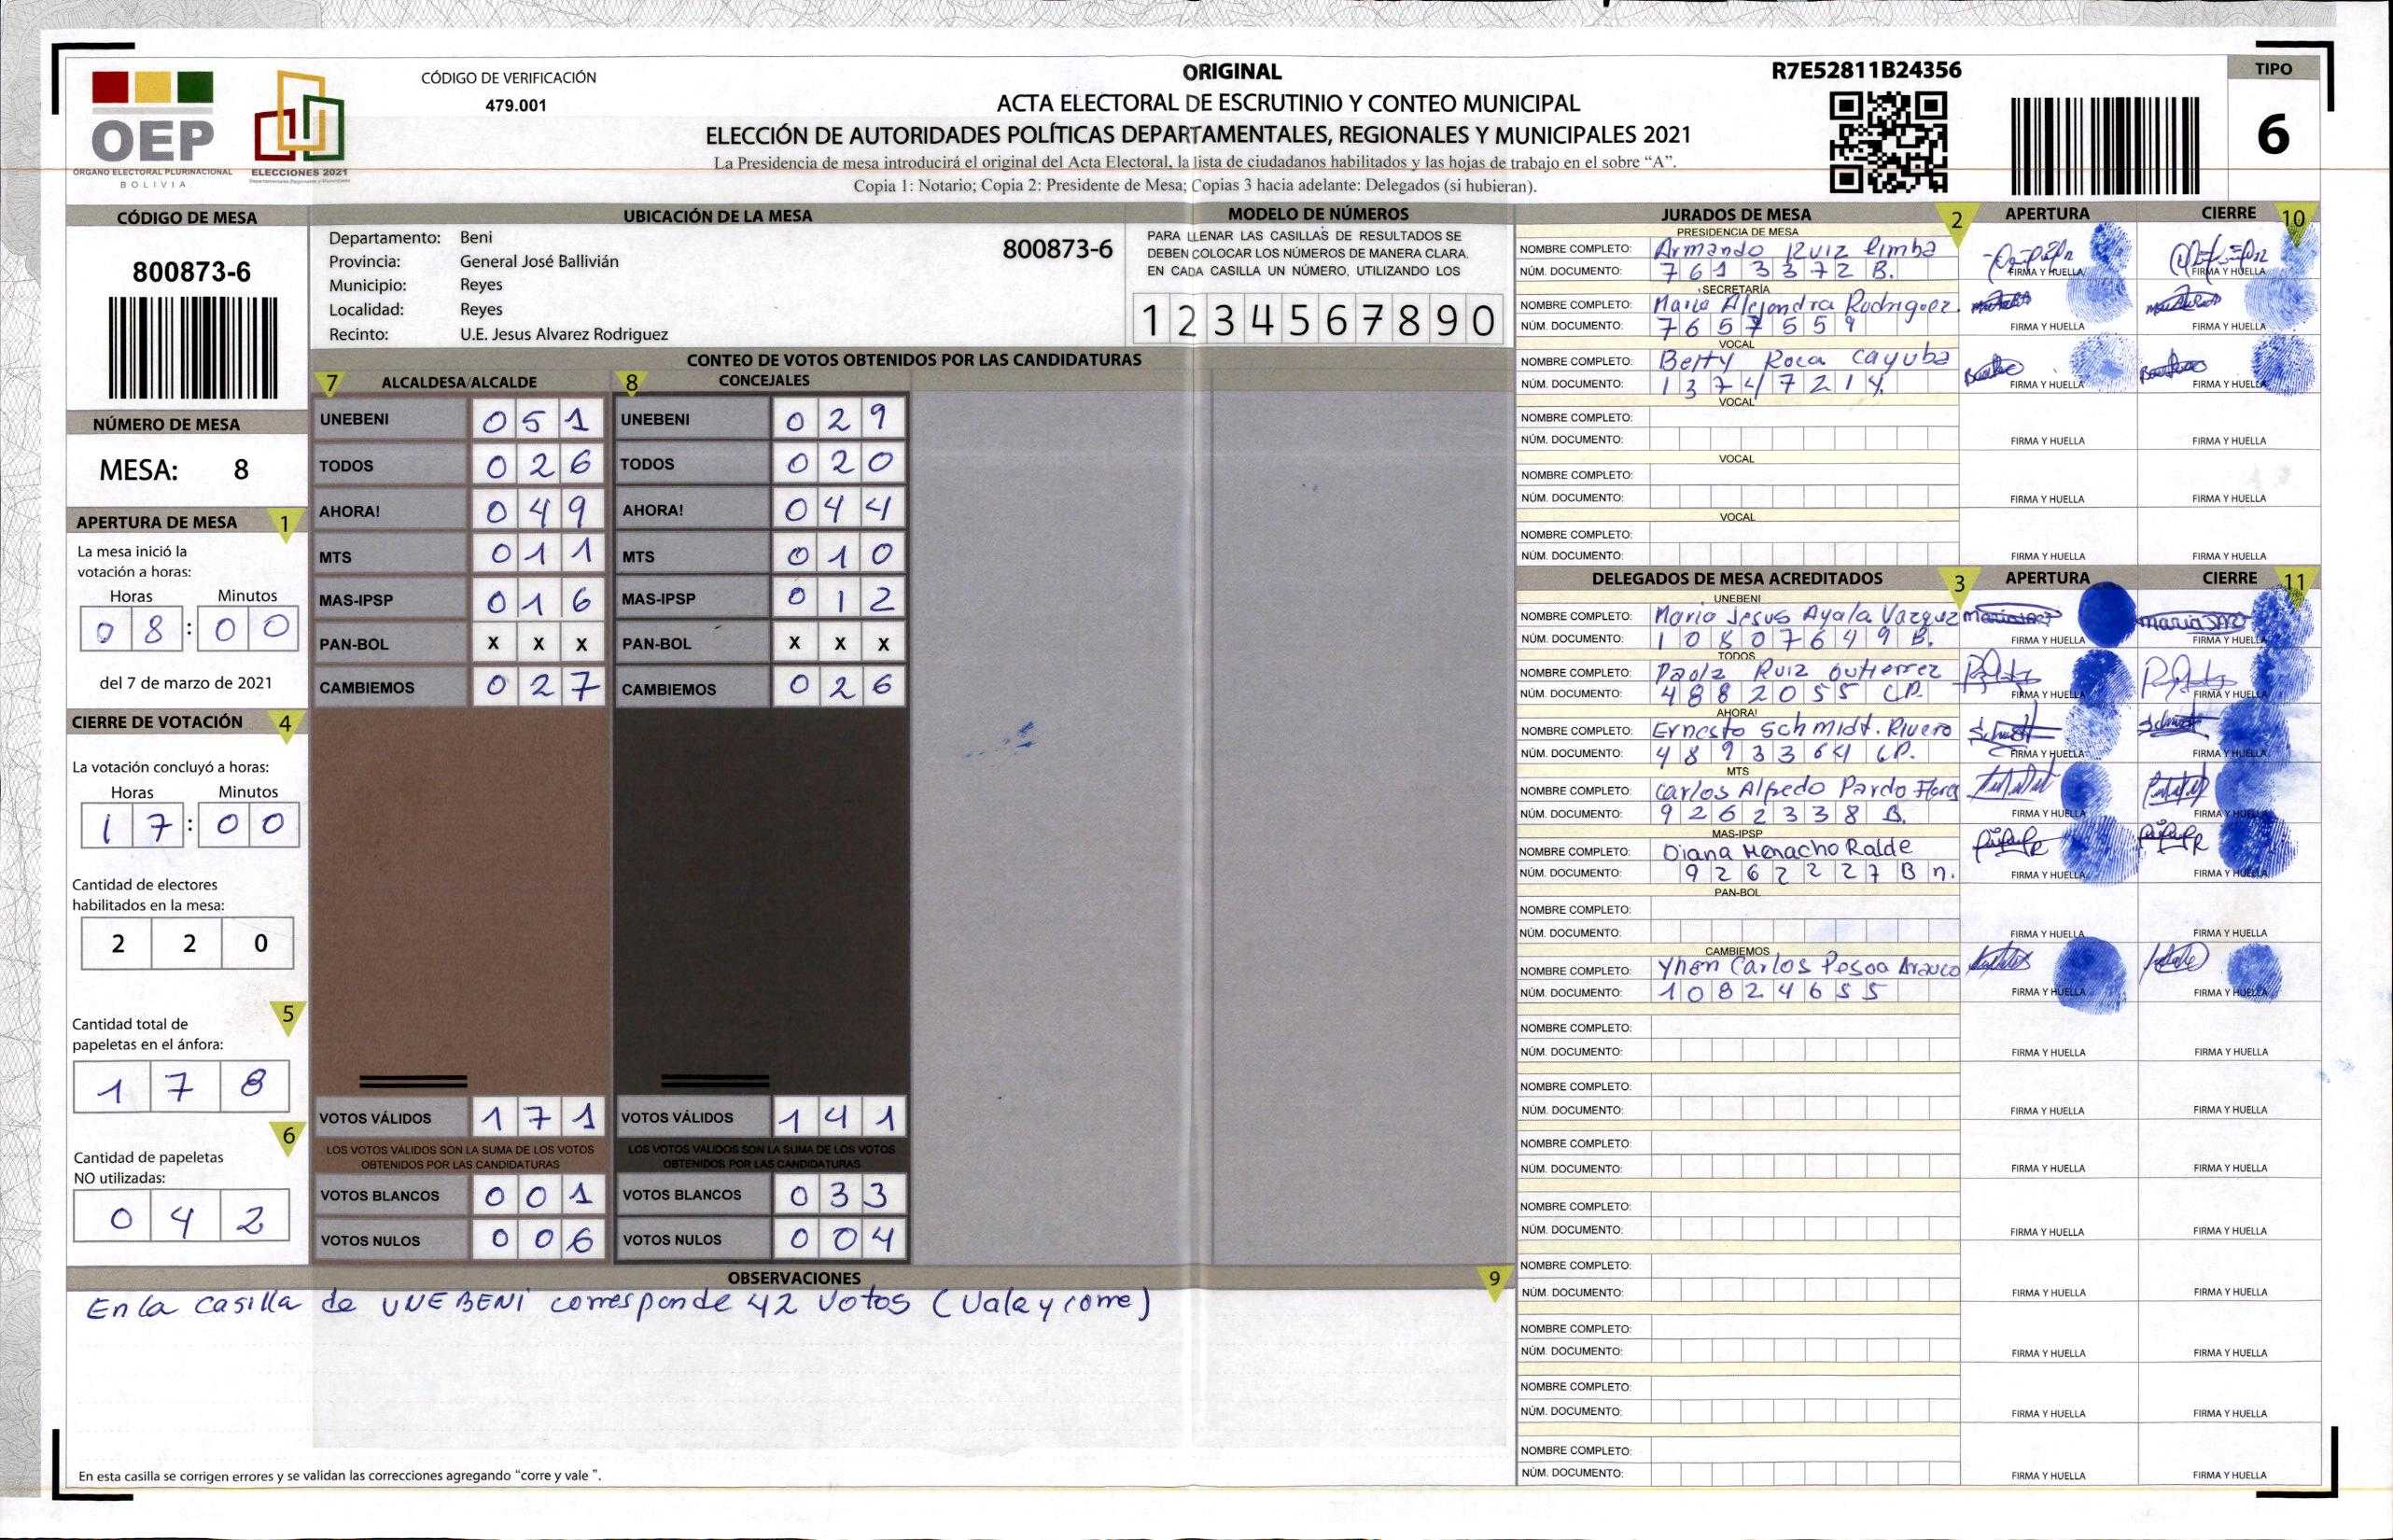 OEP
ÓRGANO ELECTORAL PLURINACIONAL
BOLIVIA
ELECCIONES 2021
Departamentales, Regionales y Municipales
CÓDIGO DE VERIFICACIÓN
479.001
ORIGINAL
ACTA ELECTORAL DE ESCRUTINIO Y CONTEO MUNICIPAL
ELECCIÓN DE AUTORIDADES POLÍTICAS DEPARTAMENTALES, REGIONALES Y MUNICIPALES 2021
La Presidencia de mesa introducirá el original del Acta Electoral, la lista de ciudadanos habilitados y las hojas de trabajo en el sobre “A”.
Copia 1: Notario; Copia 2: Presidente de Mesa; Copias 3 hacia adelante: Delegados (si hubieran).
R7E52811B24356
TIPO
6
CÓDIGO DE MESA
800873-6
NÚMERO DE MESA
MESA: 8
APERTURA DE MESA 1
La mesa inició la
votación a horas:
Horas Minutos
0 8 : 0 0
del 7 de marzo de 2021
CIERRE DE VOTACIÓN 4
La votación concluyó a horas:
Horas Minutos
1 7 : 0 0
Cantidad de electores
habilitados en la mesa:
2 2 0
5
Cantidad total de
papeletas en el ánfora:
1 7 8
6
Cantidad de papeletas
NO utilizadas:
0 4 2
UBICACIÓN DE LA MESA
Departamento: Beni
Provincia: General José Ballivián
Municipio: Reyes
Localidad: Reyes
Recinto: U.E. Jesus Alvarez Rodriguez
800873-6
MODELO DE NÚMEROS
PARA LLENAR LAS CASILLAS DE RESULTADOS SE
DEBEN COLOCAR LOS NÚMEROS DE MANERA CLARA.
EN CADA CASILLA UN NÚMERO, UTILIZANDO LOS
1 2 3 4 5 6 7 8 9 0
CONTEO DE VOTOS OBTENIDOS POR LAS CANDIDATURAS
7 ALCALDESA/ALCALDE
UNEBENI 0 5 1
TODOS 0 2 6
AHORA! 0 4 9
MTS 0 1 1
MAS-IPSP 0 1 6
PAN-BOL X X X
CAMBIEMOS 0 2 7
VOTOS VÁLIDOS 1 7 1
LOS VOTOS VÁLIDOS SON LA SUMA DE LOS VOTOS
OBTENIDOS POR LAS CANDIDATURAS
VOTOS BLANCOS 0 0 1
VOTOS NULOS 0 0 6
8 CONCEJALES
UNEBENI 0 2 9
TODOS 0 2 0
AHORA! 0 4 4
MTS 0 1 0
MAS-IPSP 0 1 2
PAN-BOL X X X
CAMBIEMOS 0 2 6
VOTOS VÁLIDOS 1 4 1
LOS VOTOS VÁLIDOS SON LA SUMA DE LOS VOTOS
OBTENIDOS POR LAS CANDIDATURAS
VOTOS BLANCOS 0 3 3
VOTOS NULOS 0 0 4
OBSERVACIONES 9
En la casilla de UNEBENI corresponde 42 votos (Vale y corre)
En esta casilla se corrigen errores y se validan las correcciones agregando “corre y vale ”.
JURADOS DE MESA 2 APERTURA CIERRE 10
PRESIDENCIA DE MESA
NOMBRE COMPLETO: Armando Ruiz limba
NÚM. DOCUMENTO: 7613372 B. FIRMA Y HUELLA FIRMA Y HUELLA
SECRETARÍA
NOMBRE COMPLETO: Maria Alejandra Rodriguez.
NÚM. DOCUMENTO: 7657559 FIRMA Y HUELLA FIRMA Y HUELLA
VOCAL
NOMBRE COMPLETO: Betty Roca Cayuba
NÚM. DOCUMENTO: 13747214. FIRMA Y HUELLA FIRMA Y HUELLA
VOCAL
NOMBRE COMPLETO:
NÚM. DOCUMENTO: FIRMA Y HUELLA FIRMA Y HUELLA
VOCAL
NOMBRE COMPLETO:
NÚM. DOCUMENTO: FIRMA Y HUELLA FIRMA Y HUELLA
VOCAL
NOMBRE COMPLETO:
NÚM. DOCUMENTO: FIRMA Y HUELLA FIRMA Y HUELLA
DELEGADOS DE MESA ACREDITADOS 3 APERTURA CIERRE 11
UNEBENI
NOMBRE COMPLETO: Maria Jesus Ayala Vazquez
NÚM. DOCUMENTO: 10807649 B. FIRMA Y HUELLA FIRMA Y HUELLA
TODOS
NOMBRE COMPLETO: Paola Ruiz Gutierrez
NÚM. DOCUMENTO: 4882055 LP. FIRMA Y HUELLA FIRMA Y HUELLA
AHORA!
NOMBRE COMPLETO: Ernesto Schmidt. Rivero
NÚM. DOCUMENTO: 4893364 LP. FIRMA Y HUELLA FIRMA Y HUELLA
MTS
NOMBRE COMPLETO: Carlos Alfredo Pardo Flores
NÚM. DOCUMENTO: 9262338 B. FIRMA Y HUELLA FIRMA Y HUELLA
MAS-IPSP
NOMBRE COMPLETO: Diana Menacho Ralde
NÚM. DOCUMENTO: 9262227 Bn. FIRMA Y HUELLA FIRMA Y HUELLA
PAN-BOL
NOMBRE COMPLETO:
NÚM. DOCUMENTO: FIRMA Y HUELLA FIRMA Y HUELLA
CAMBIEMOS
NOMBRE COMPLETO: Yhon Carlos Pesoa Arauco
NÚM. DOCUMENTO: 10824655 FIRMA Y HUELLA FIRMA Y HUELLA
NOMBRE COMPLETO:
NÚM. DOCUMENTO: FIRMA Y HUELLA FIRMA Y HUELLA
NOMBRE COMPLETO:
NÚM. DOCUMENTO: FIRMA Y HUELLA FIRMA Y HUELLA
NOMBRE COMPLETO:
NÚM. DOCUMENTO: FIRMA Y HUELLA FIRMA Y HUELLA
NOMBRE COMPLETO:
NÚM. DOCUMENTO: FIRMA Y HUELLA FIRMA Y HUELLA
NOMBRE COMPLETO:
NÚM. DOCUMENTO: FIRMA Y HUELLA FIRMA Y HUELLA
NOMBRE COMPLETO:
NÚM. DOCUMENTO: FIRMA Y HUELLA FIRMA Y HUELLA
NOMBRE COMPLETO:
NÚM. DOCUMENTO: FIRMA Y HUELLA FIRMA Y HUELLA
NOMBRE COMPLETO:
NÚM. DOCUMENTO: FIRMA Y HUELLA FIRMA Y HUELLA